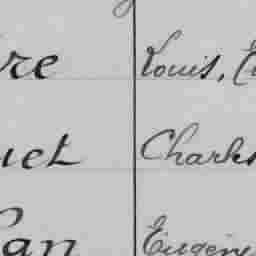 re Louis, E
uet Charles
Pan Eugène